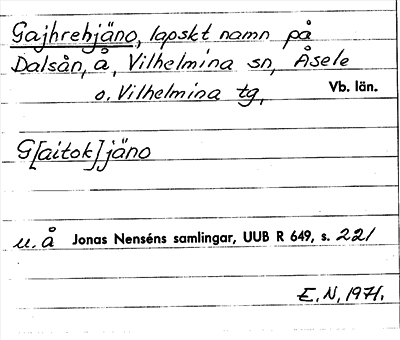 Gajhrehjäno, lapskt namn på
Dalsån, å, Vilhelmina sn, Åsele
o. Vilhelmina tg, Vb. län.
G[aitok]jäno
u. å Jonas Nenséns samlingar, UUB R 649, s. 221
E.N, 1971.